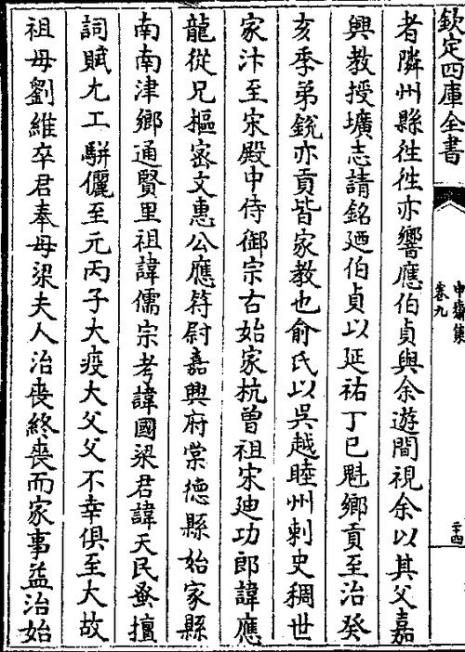 欽定四庫全書
申齋集
卷九
二十四
者隣州縣徃徃亦響應伯貞與余遊間視余以其父嘉
興教授壙志請銘廼伯貞以延祐丁巳魁鄉貢至治癸
亥季弟銳亦貢皆家教也俞氏以吳越睦州刺史稠世
家汴至宋殿中侍御宗古始家杭曽祖宋廸功郎諱應
龍從兄摳宻文惠公應符尉嘉興府崇德縣始家縣
南南津鄉通賢里祖諱儒宗考諱國梁君諱天民蚤擅
詞賦尤工駢儷至元丙子大疫大父父不幸俱至大故
祖母劉維卒君奉母梁夫人治喪終喪而家事益治始